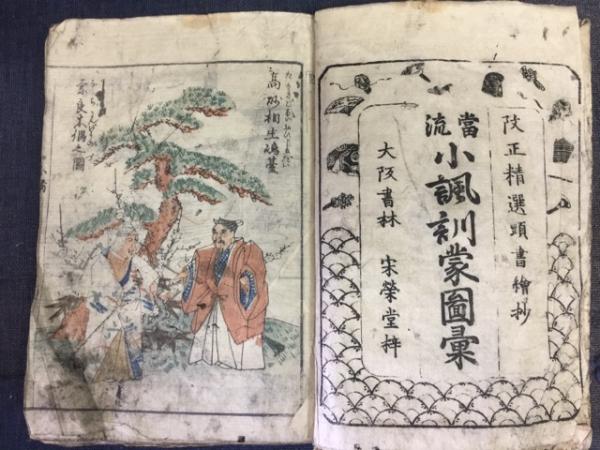 改正精選頭書繪抄
當流
小諷訓蒙圖彙
大阪書林　宋榮堂梓
高砂相生嶋臺
之圖